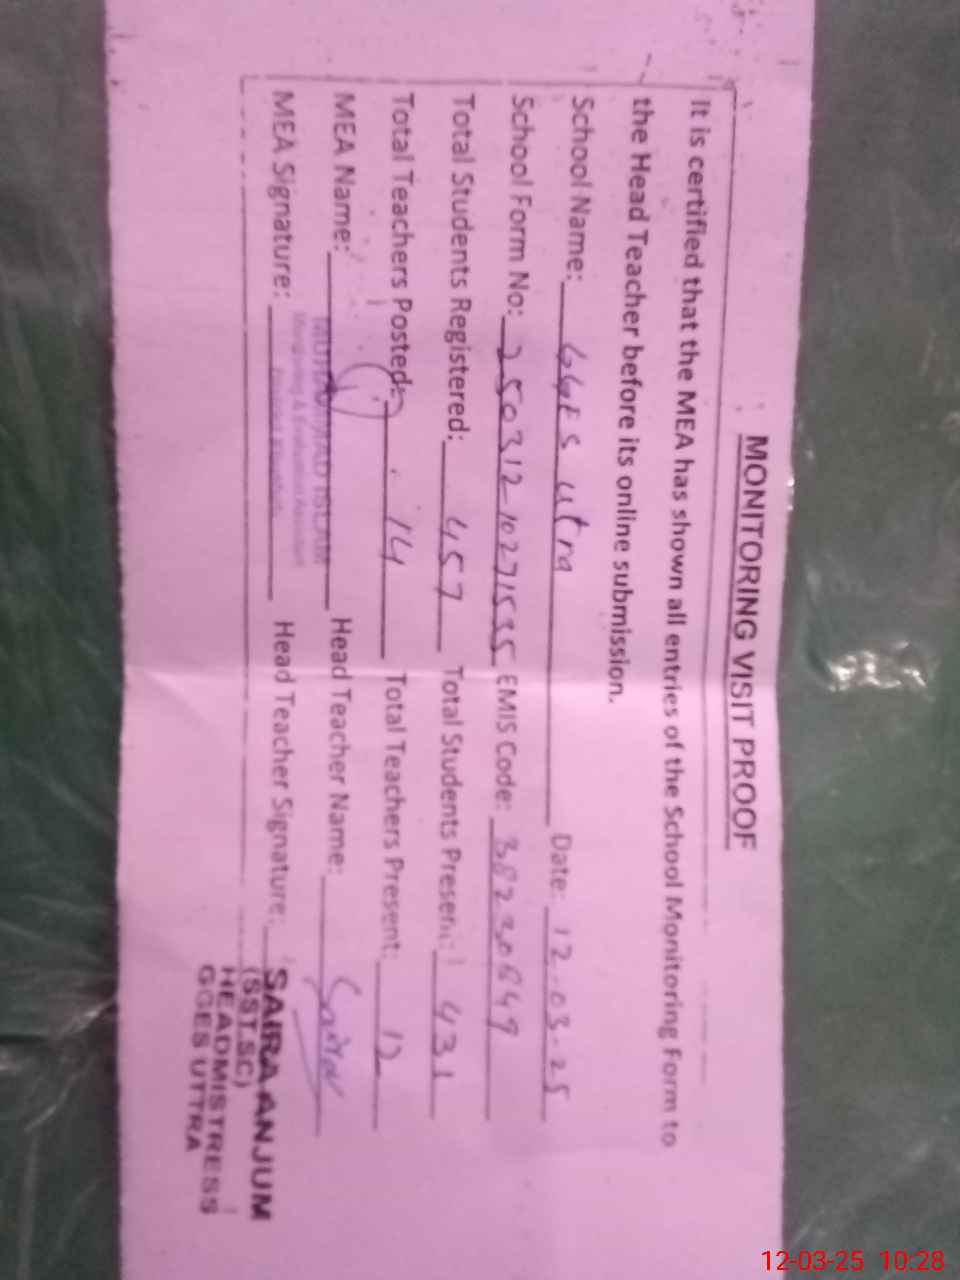 MONITORING VISIT PROOF
It is certified that the MEA has shown all entries of the School Monitoring Form to
the Head Teacher before its online submission.
School Name: GGES utra Date: 12-03-25
School Form No: 250312 10271535 EMIS Code: 38230649
Total Students Registered: 457 Total Students Present: 431
Total Teachers Posted: 14 Total Teachers Present: 12
MEA Name: ISLAM Head Teacher Name: Saira
Monitoring & Evaluation Assistant
MEA Signature: Head Teacher Signature:
SAIRA ANJUM
(SST.SC)
HEADMISTRESS
GGES UTTRA
12-03-25 10:28